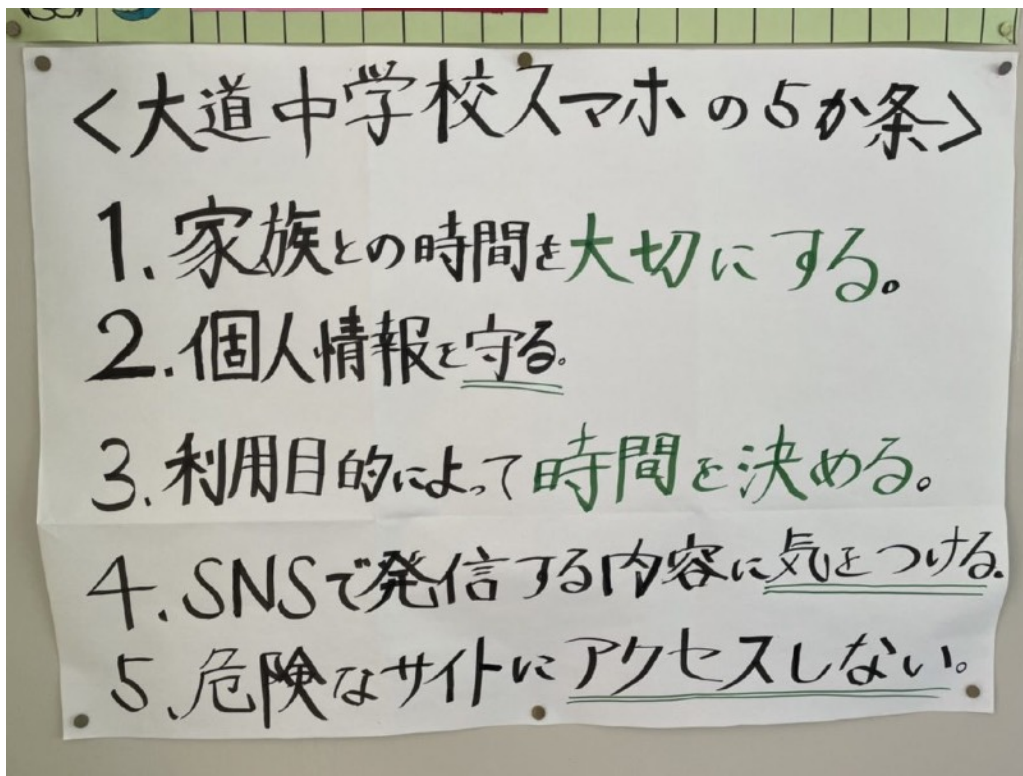 <大道中学校スマホの5か条>
1.家族との時間を大切にする。
2.個人情報を守る。
3.利用目的によって時間を決める。
4.SNSで発信する内容に気をつける.
5.危険なサイトにアクセスしない。